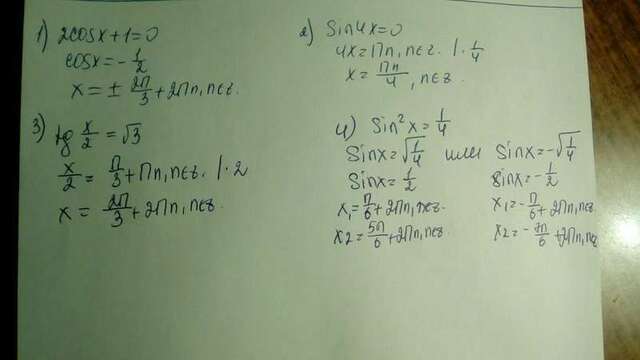 1) 2cosx+1=0
cosx=-1/2
x=± 2π/3 +2πn, n∈z.
2) Sin4x=0
4x=πn, n∈z. | · 1/4
x= πn/4, n∈z.
3) tg x/2 = √3
x/2 = π/3 + πn, n∈z. | · 2
x= 2π/3 +2πn, n∈z.
4) Sin²x= 1/4
Sinx=√1/4 или Sinx=-√1/4
Sinx= 1/2 Sinx=-1/2
x₁= π/6 +2πn, n∈z. x₁=- π/6 +2πn, n∈z.
x2= 5π/6 +2πn, n∈z x₂=- 7π/6 +2πn, n∈z